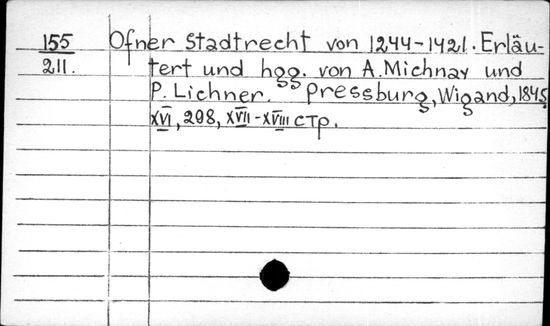 155 Ofner Stadtrecht von 1244-1421. Erläu-
211. tert und hgg. von A. Michnay und
P. Lichner. Pressburg, Wigand, 1845.
XVI, 298, XVII-XVIII стр.